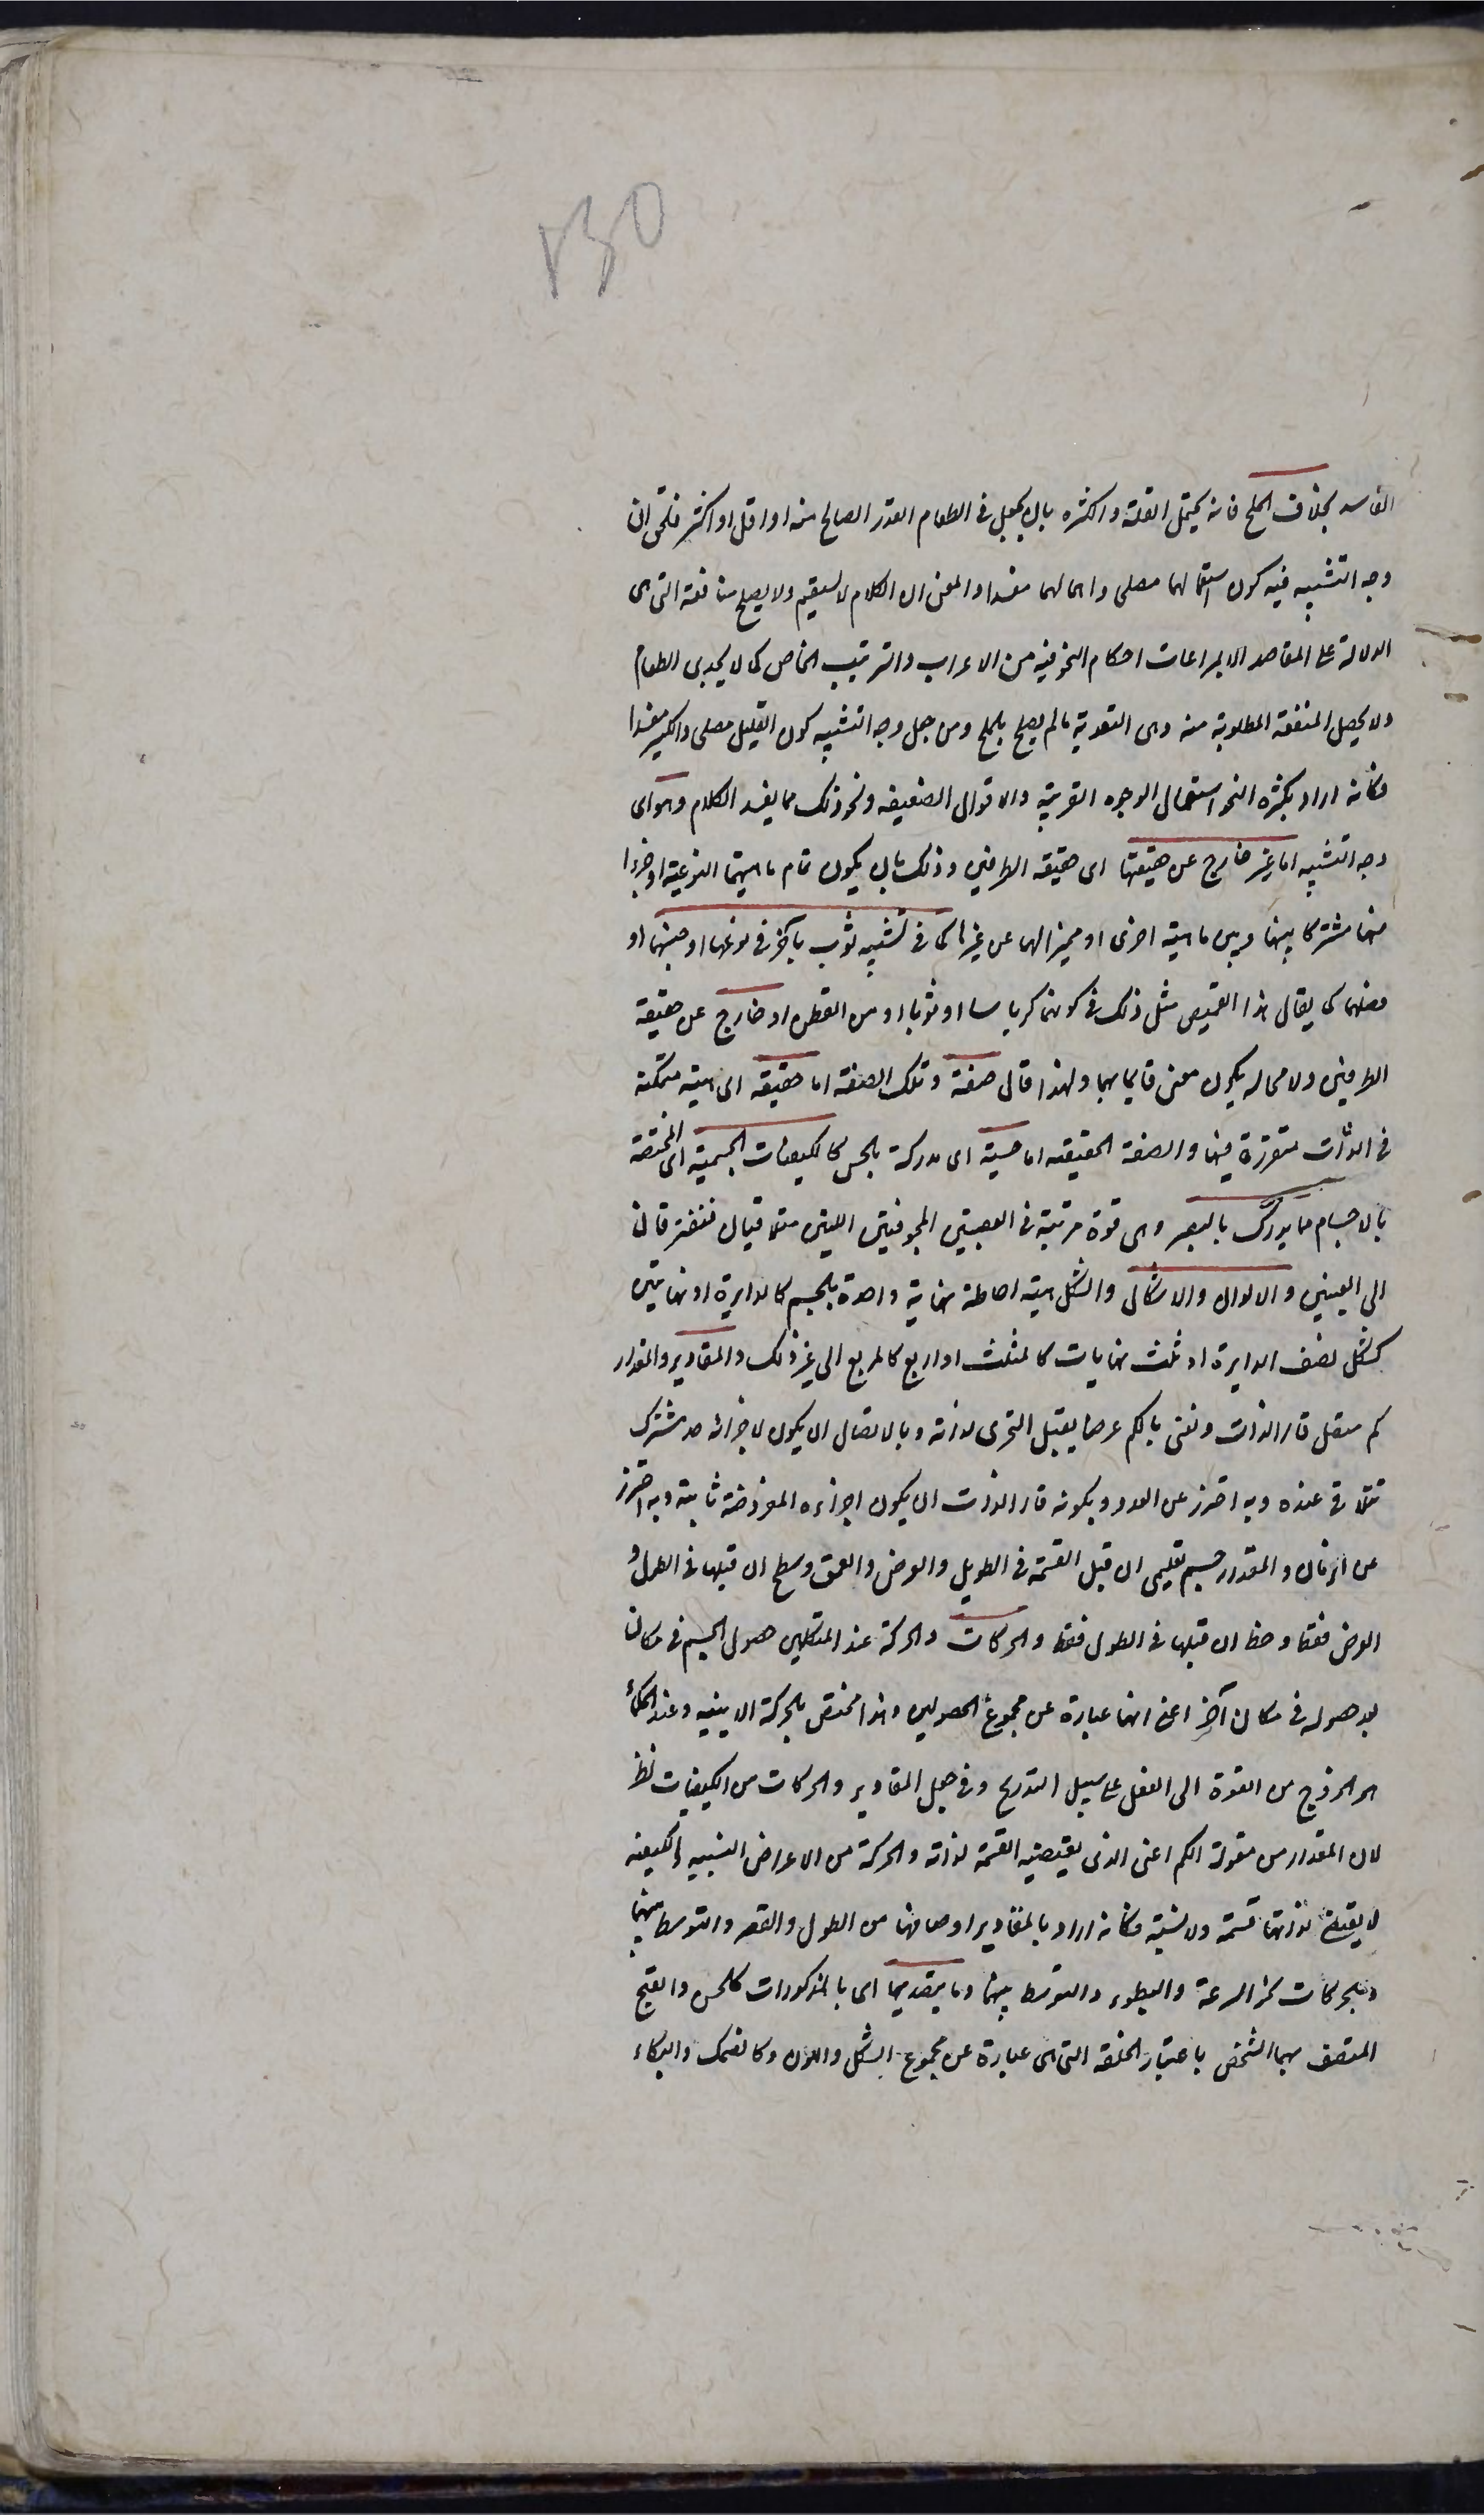 ١٣٥
الفاسد بخلاف الملح فانه يحتمل القلة والكثره بان يجعل فى الطعام القدر الصالح منه او اقل او اكثر فالحق ان
وجه التشبيه فيه كون استعمالهما مصلحا واهمالهما مفسدا والمعنى ان الكلام لا يستقيم ولا يصلح منافعه التى هى
الدلالة على المقاصد الا بمراعات احكام النحو فيه من الاعراب والترتيب الخاص كما لا يجدى الطعام
ولا يحصل المنفعة المطلوبة منه وهى التغدية ما لم يصلح بالملح ومن جعل وجه التشبيه كون القليل مصلحا والكثير مفسدا
فكانه اراد بكثرة النحو استعمال الوجوه الغريبة والاقوال الضعيفه ونحو ذلك مما يفسد الكلام وهو اى
وجه التشبيه اما غير خارج عن حقيقتهما اى حقيقة الطرفين وذلك بان يكون تمام ماهيتهما النوعية او جزءا
منهما مشتركا بينهما وبين ماهية اخرى او مميزا لهما عن غيرها كما فى تشبيه ثوب بآخر فى نوعهما او جنسهما او
فصلهما كما يقال هذا القميص مثل ذلك فى كونهما كرباسا او ثوبا او من القطن او خارج عن حقيقة
الطرفين ولا محاله يكون معنى قايما بهما ولهذا قال صفة وتلك الصفة اما حقيقه اى هيئة متمكنة
فى الذات متقررة فيها والصفة الحقيقه اما حسية اى مدركة بالحس كالكيفيات الجسمية اى المختصة
بالاجسام مما يدرك بالبصر وهى قوة مرتبة فى العصبتين المجوفتين اللتين تتلاقيان فتفترقان
الى العينين والالوان والاشكال والشكل هيئة احاطة نهاية واحدة بالجسم كالدايرة او نهايتين
كشكل نصف الدايرة او ثلث نهايات كالمثلث او اربع كالمربع الى غير ذلك والمقادير والمقدار
كم متصل قار الذات ونعنى بالكم عرضا يقبل التجزى لذاته وبالاتصال ان يكون لاجزائه حد مشترك
تتلاقى عنده وبه احترز عن العدد وبكونه قار الذات ان يكون اجزاءه المفروضة ثابتة وبه احترز
عن الزمان والمقدار جسم تعليمى ان قبل القسمة فى الطول والعرض والعمق وسطح ان قبلها فى الطول و
العرض فقط وخط ان قبلها فى الطول فقط والحركات والحركة عند المتكلمين حصول الجسم فى مكان
بعد حصوله فى مكان آخر اعنى انها عبارة عن مجموع الحصولين وهذا مختص بالحركة الاينيه وعند الحكماء
هو الخروج من القوة الى الفعل على سبيل التدريج وفى جعل المقادير والحركات من الكيفيات نظر
لان المقدار من مقولة الكم اعنى الذى يقتضيه القسمة لذاته والحركة من الاعراض النسبيه والكيفيه
لا يقتضى لذاتها قسمة ولا نسبة فكانه اراد بالمقادير اوصافها من الطول والقصر والتوسط بينهما
وبالحركات نحو السرعة والبطوء والتوسط بينهما وما يتصل بها اى بالمذكورات كالحسن والقبح
المتصف بهما الشخص باعتبار الخلقة التى هى عبارة عن مجموع الشكل واللون وكالضحك والبكاء